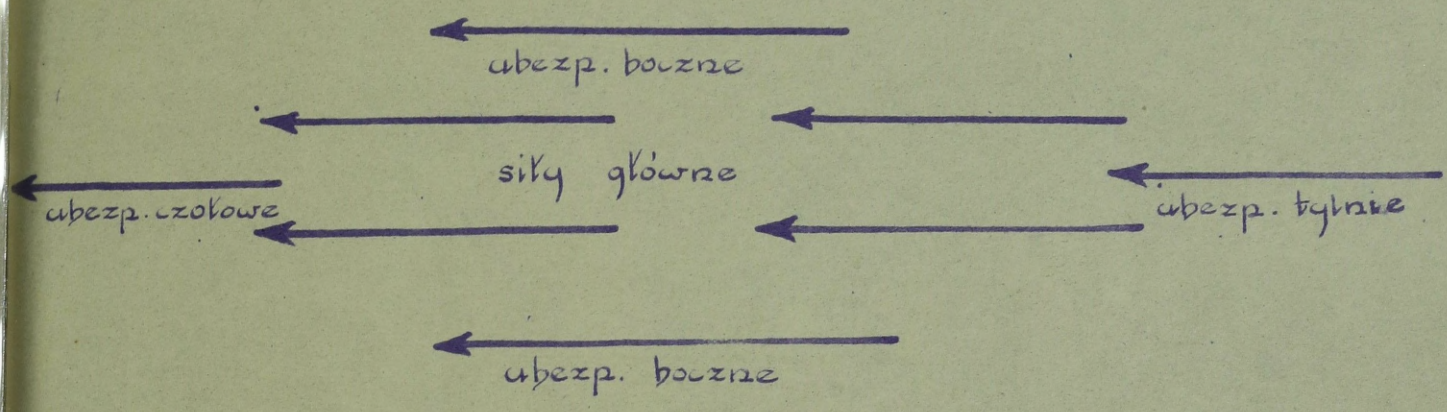 ubezp. boczne
siły główne
ubezp. czołowe
ubezp. tylnie
ubezp. boczne